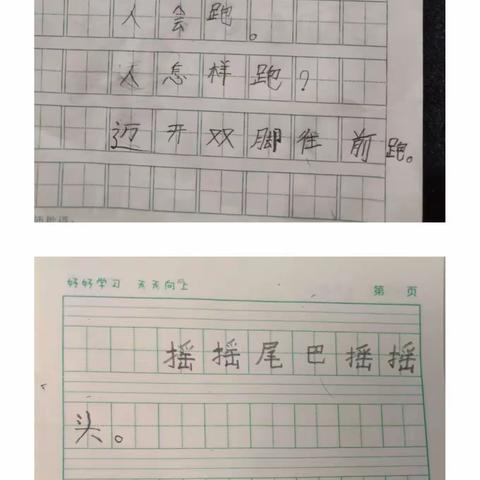 人会跑。
人怎样跑?
迈开双脚往前跑。
好好学习 天天向上 第 页
摇摇尾巴摇摇
头。